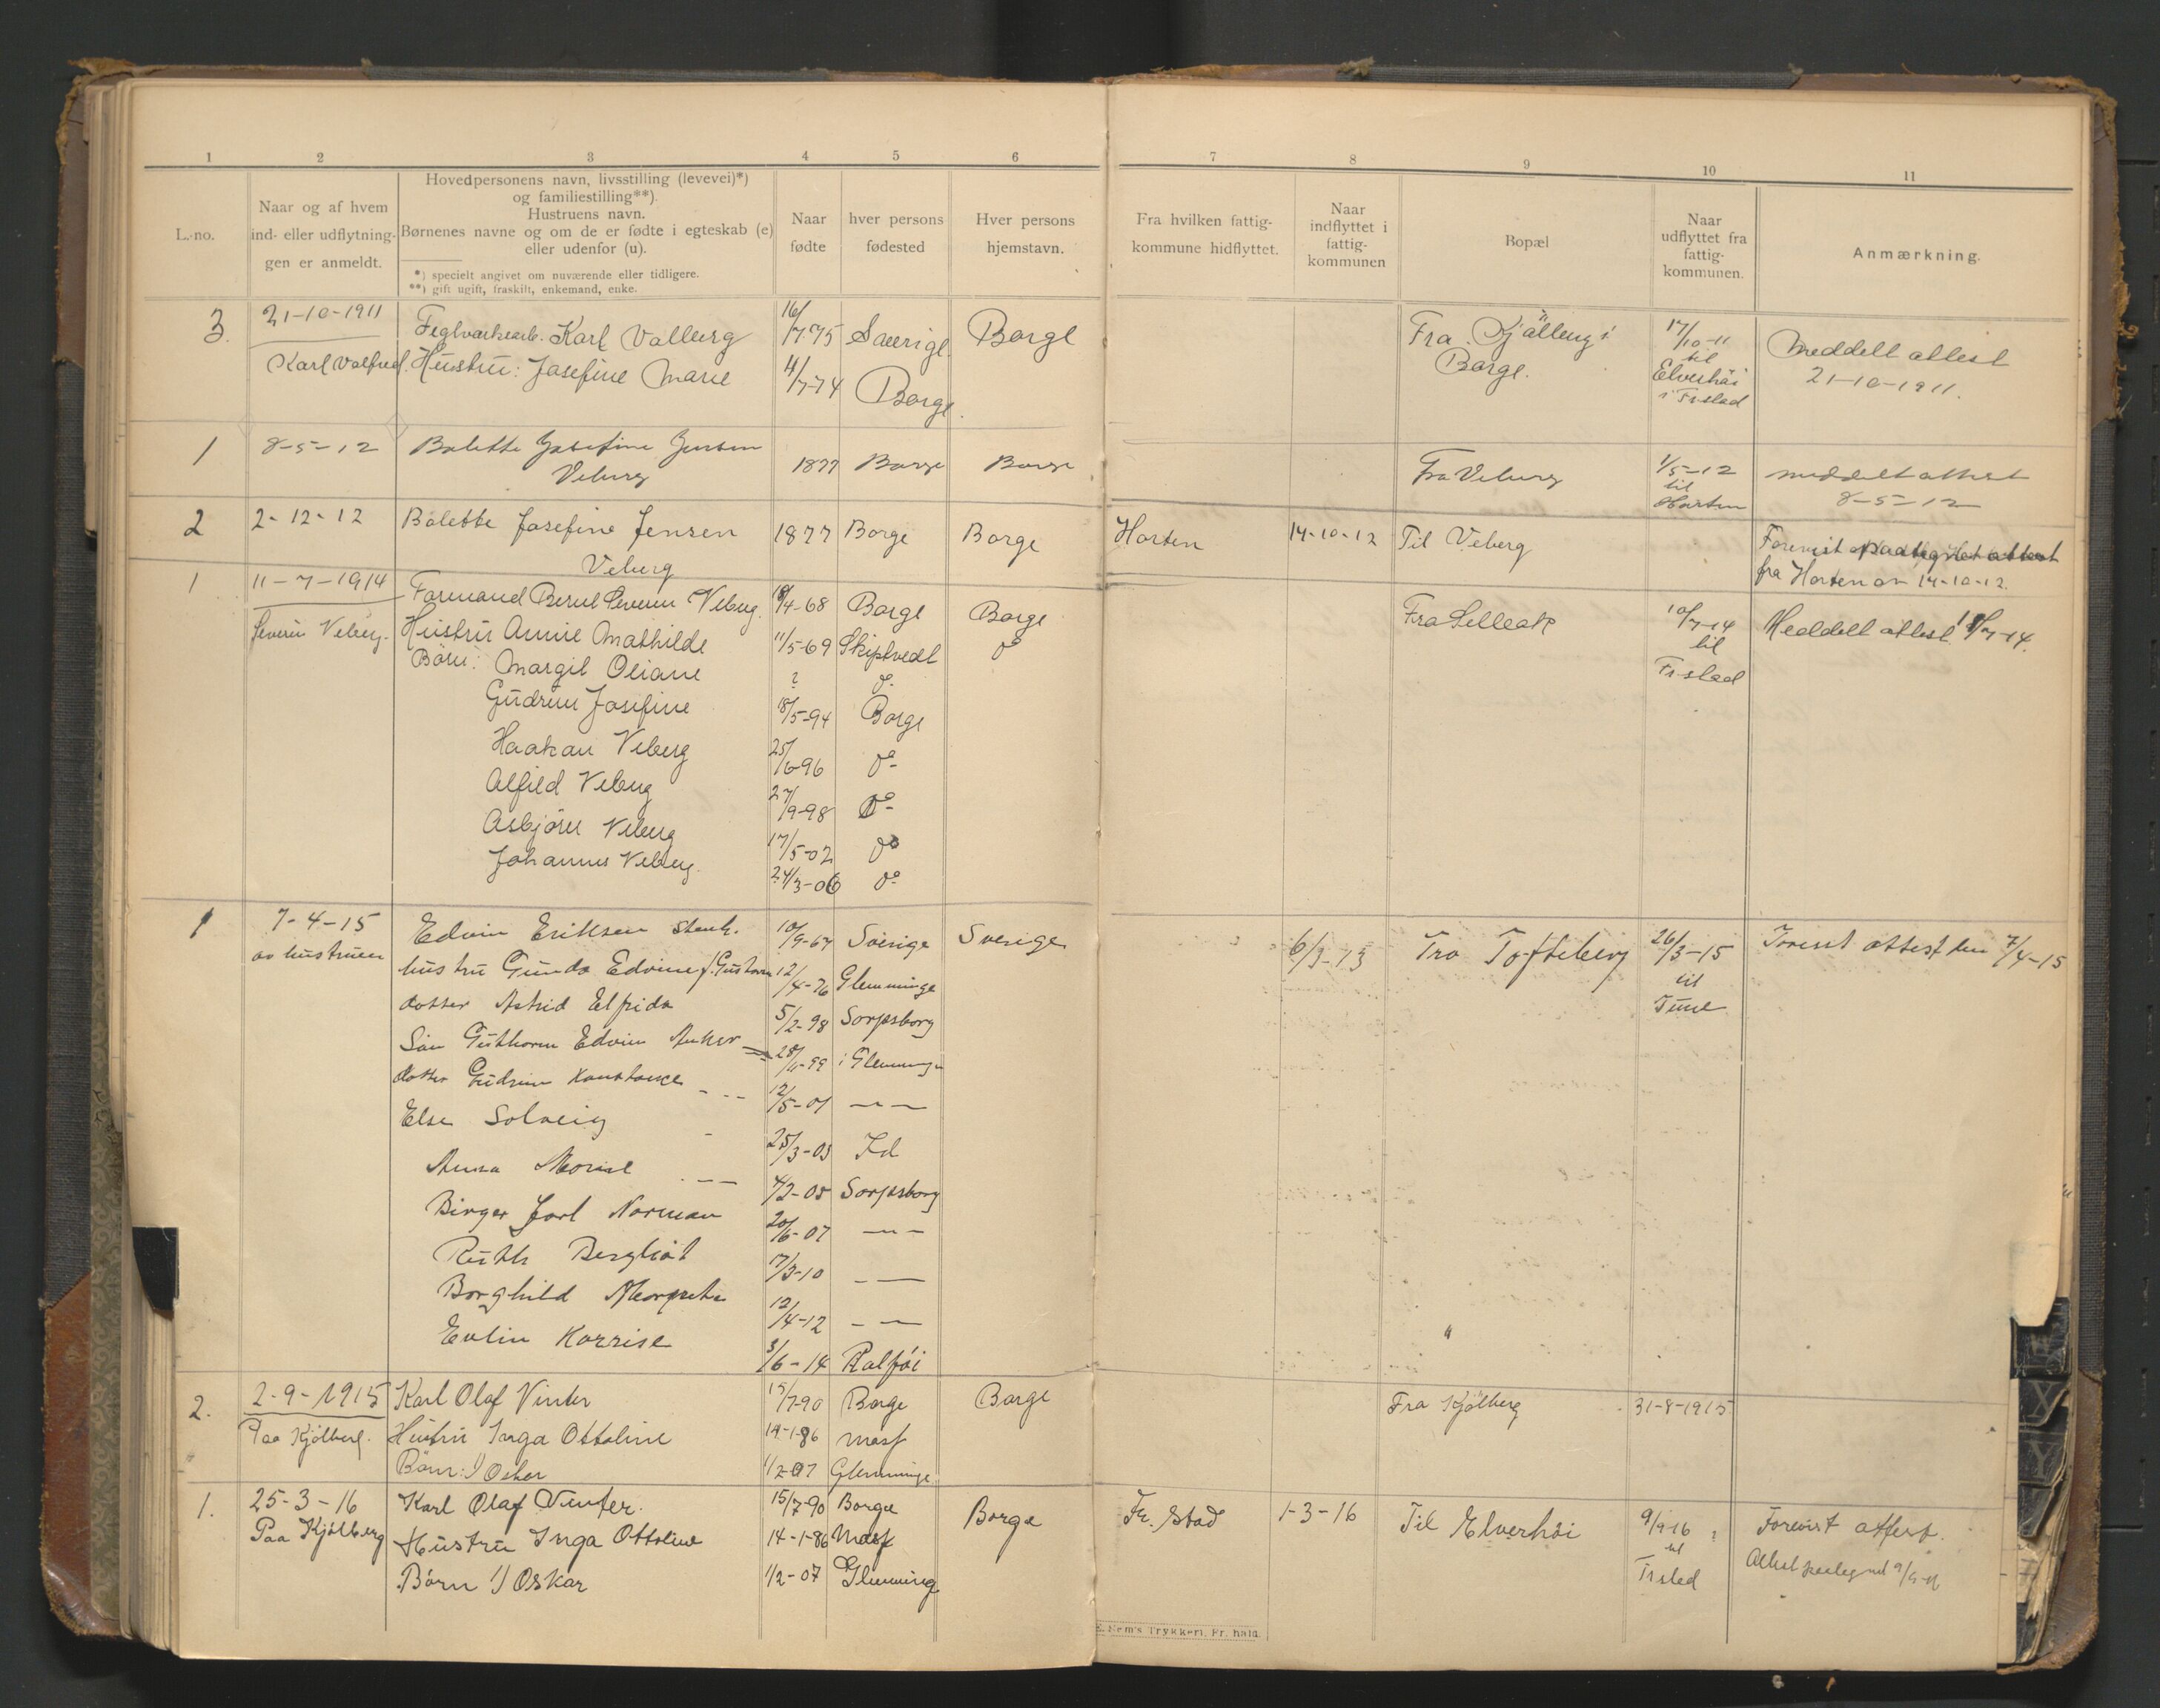 1 2 3 4 5 6 7 8 9 10 11
L.-no.
Naar og af hvem
ind- eller udflytnin-
gen er anmeldt.
Hovedpersonens navn, livsstilling (levevei)*)
og familiestilling**).
Hustruens navn.
Børnenes navne og om de er fødte i egteskab (e)
eller udenfor (u).
*) specielt angivet om nuværende eller tidligere.
**) gift ugift, fraskilt, enkemand, enke.
Naar
fødte
hver persons
fødested
Hver persons
hjemstavn.
Fra hvilken fattig-
kommune hidflyttet.
Naar
indflyttet i
fattig-
kommunen
Bopæl
Naar
udflyttet fra
fattig-
kommunen.
Anmærkning.
3. 21-10-1911 Karl 16/7-75 Borge Fra 17/10-11 Meddelt attest
Karl Valfred. Hustru: Josefine Marie 11/7-74 Borge. Borge. til 21-10-1911.
Elverhöi
i Fr.stad
1 8-5-12 Bolette Josefine Jensen 1877 Borge Borge Fra Veberg 1/5-12 meddelt attest
Veberg til 8-5-12
Horten
2 2-12-12 Bolette Josefine Jensen 1877 Borge Borge Horten 14-10-12 Til Veberg Forevist paategnet attest
Veberg fra Horten av 14-10-12.
1 11-7-1914 Formand Bernt Severin Veberg. 18/4-68 Borge Borge Fra Selleak 10/7-14 Meddelt attest 11/7-14.
Severin Veberg. Hustru Annie Mathilde 11/5-69 Skiptvedt do til
Börn: Margit Oliane ? do Fr.stad
Gudrun Josefine 18/5-94 Borge
Haakon Veberg 25/6-96 do
Alfild Veberg 27/9-98 do
Asbjörn Veberg 17/5-02 do
Johannes Veberg. 24/3-06 do
1 7-4-15 Edvin Eriksen 10/9-67 Sverige Sverige 6/3-13 Fra Tofteberg 26/3-15 attest den 7/4-15
av hustruen hustru Gunda Edvine 12/4-76 Glemminge til
datter Astrid Elfrida 5/2-98 Sarpsborg Tune
Sön Guthorm Edvin Anker 28/11-99 i Glemminge
datter Gudrun Konstanse 12/5-01 — —
Else Solveig 25/3-03 Id
Anna Marie 4/2-05 Sarpsborg
Birger Jarl Norman 20/6-07 — —
Ruth Bergliot 17/3-10 — —
Borghild Margrete 12/4-12 — —
Evlin Karrise 3/6-14 Rolföi
2. 2-9-1915 Karl Olaf Vinter 15/7-90 Borge Borge Fra Kjölberg 31-8-1915
Paa Kjölberg. Hustru Inga Ottoline 14-1-86 Moss
Börn: 1) Oskar 1/2-07 Glemminge
1. 25-3-16 Karl Olaf Vinter. 15/7-90 Borge Borge Fr. stad 1-3-16 Til Elverhöi 9/9-16 Forevist attest.
Paa Kjölberg Hustru Inga Ottoline 14-1-86 Moss til
Börn 1) Oskar 1/2-07 Glemminge Fr.stad
E. Sem's Trykkeri, Fr. hald.